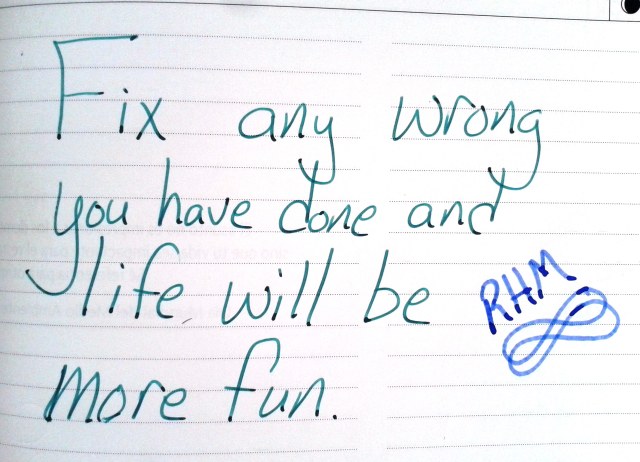 Fix any wrong
you have done and
life will be
RHM
more fun.